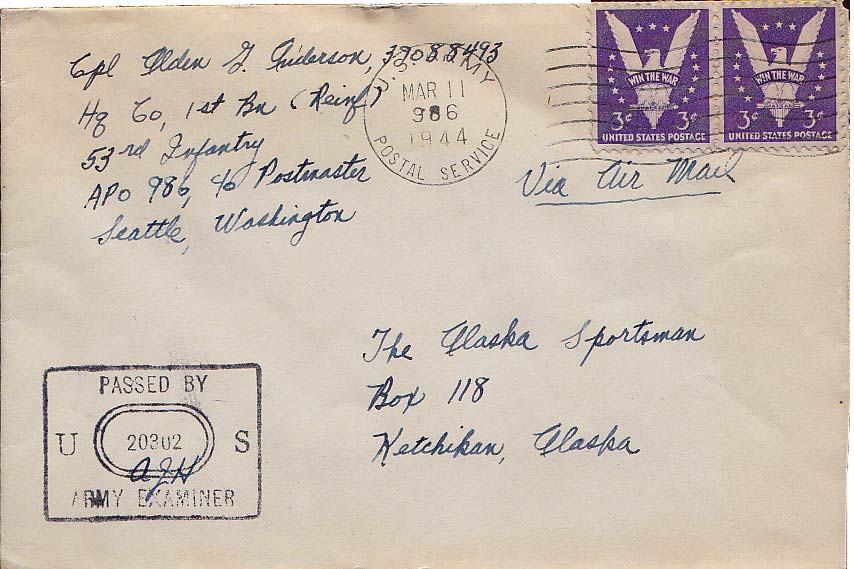 Cpl Olden G. Anderson, 38088493
Hq Co, 1st Bn (Reinf)
53rd Infantry
APO 986, c/o Postmaster
Seattle, Washington
U.S. ARMY
MAR 11
986
1944
POSTAL SERVICE
WIN THE WAR
3¢ 3¢
UNITED STATES POSTAGE
WIN THE WAR
3¢ 3¢
UNITED STATES POSTAGE
Via Air Mail
The Alaska Sportsman
Box 118
Ketchikan, Alaska
PASSED BY
U 20302 S
AJH
ARMY EXAMINER